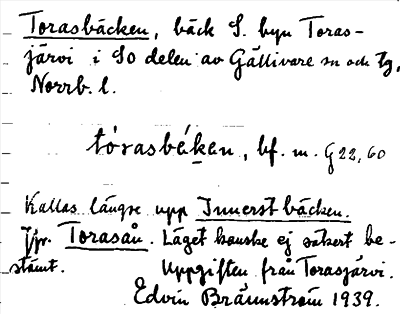 Torasbäcken, bäck S. byn Toras-
järvi i SO delen av Gällivare sn och tg,
Norrb. l.
tórasbéken, bf. m. G 22,60
Kallas längre upp Innerstbäcken.
Jfr. Torasån. Läget kanske ej säkert be-
stämt. Uppgiften från Torasjärvi.
Edvin Brännström 1939.